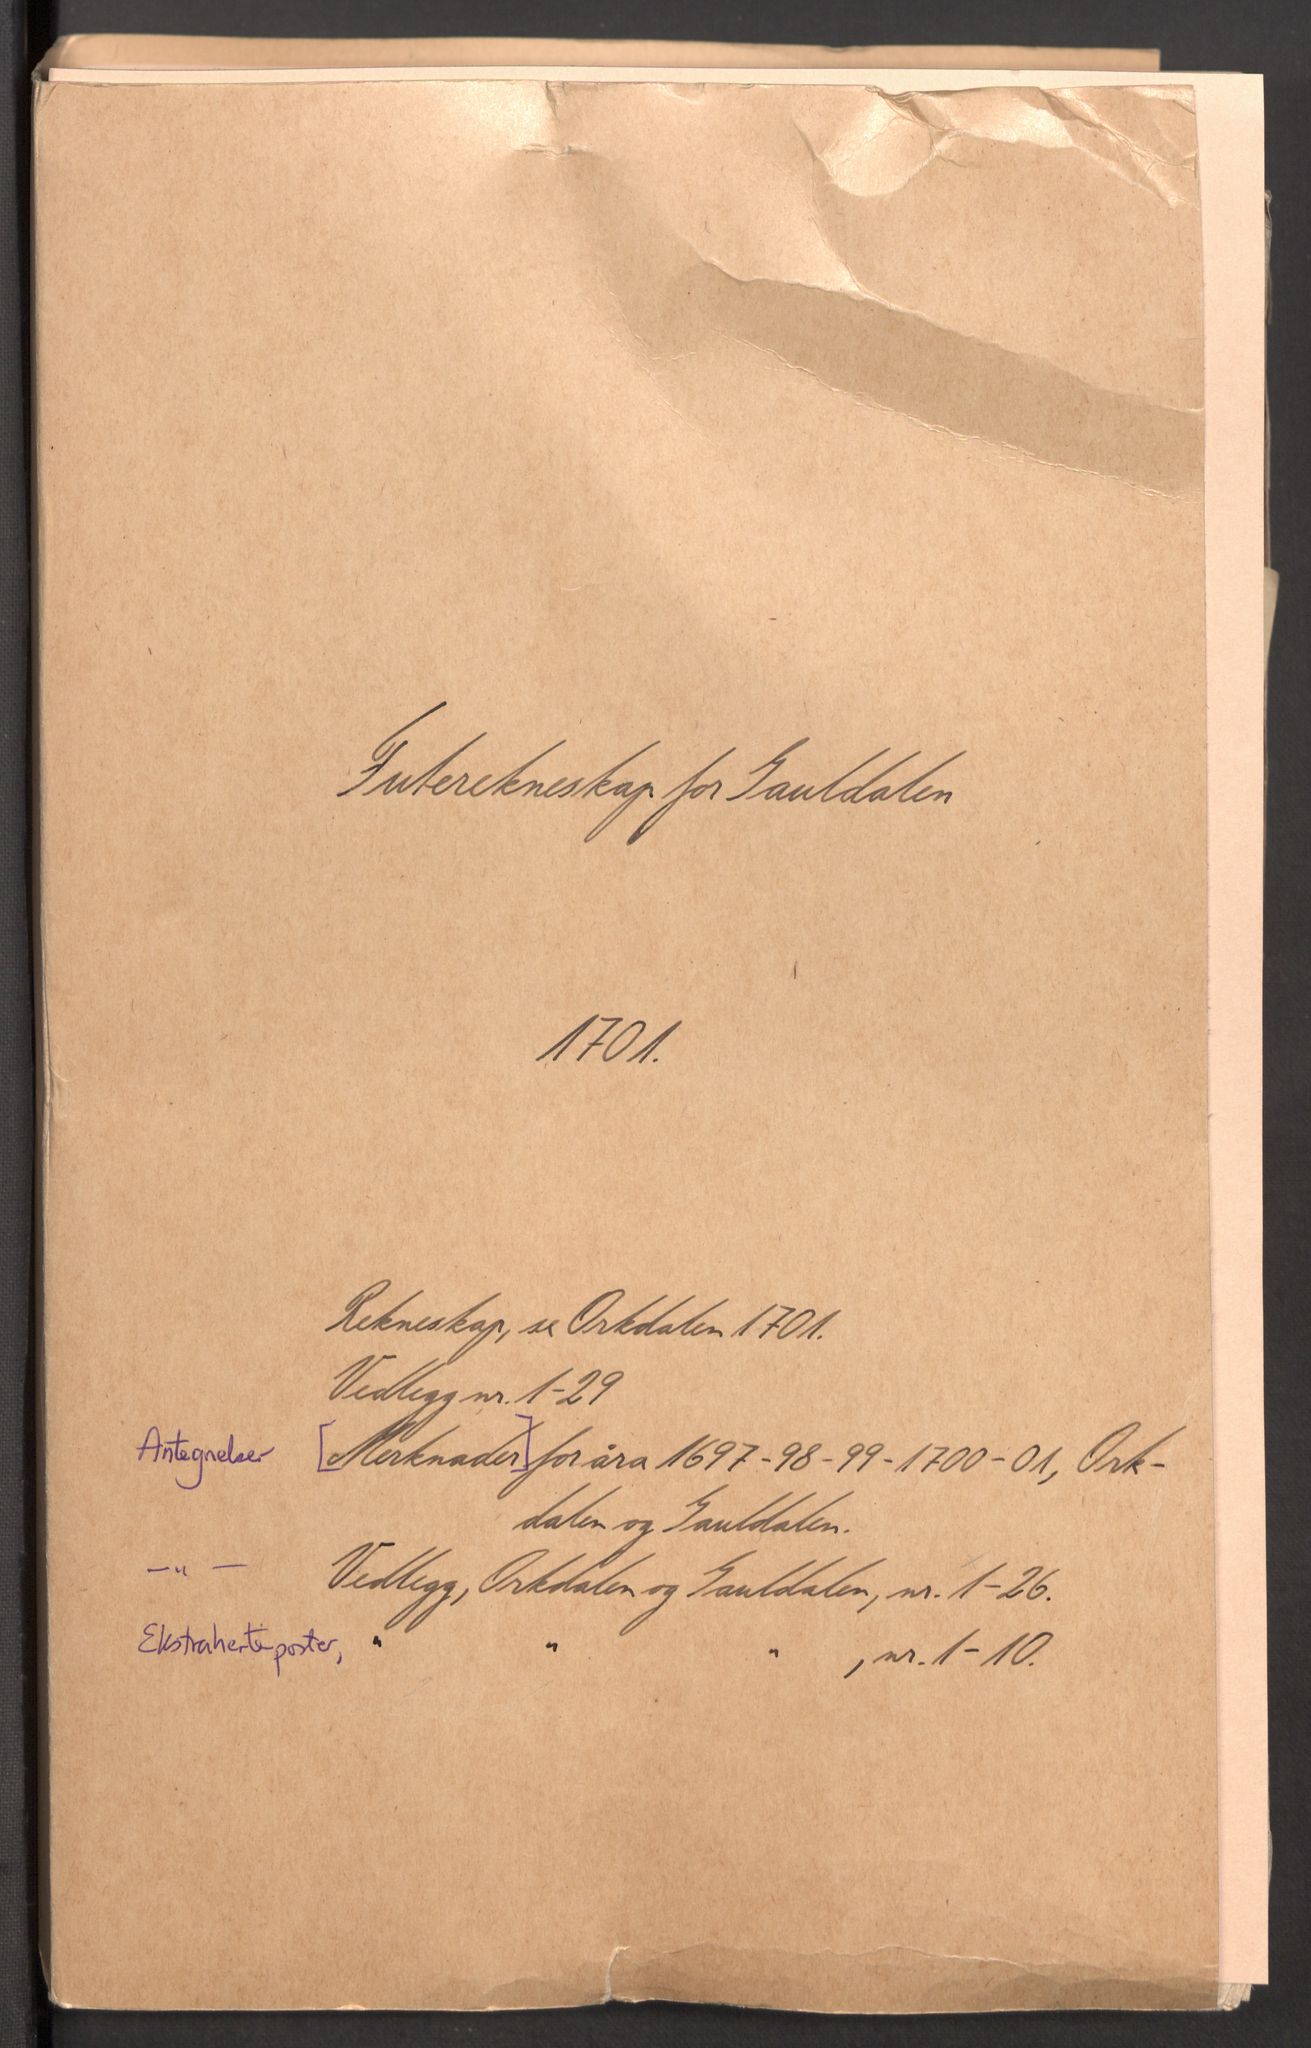 Futerekneskap for Gauldalen
1701.
Rekneskap, se Orkdalen 1701.
Vedlegg nr. 1-29
Antegnelser [Merknader] for åra 1697-98-99-1700-01, Ork-
dalen og Gauldalen.
—"— Vedlegg, Orkdalen og Gauldalen, nr. 1-26.
Ekstraherte poster, " " " , nr. 1-10.